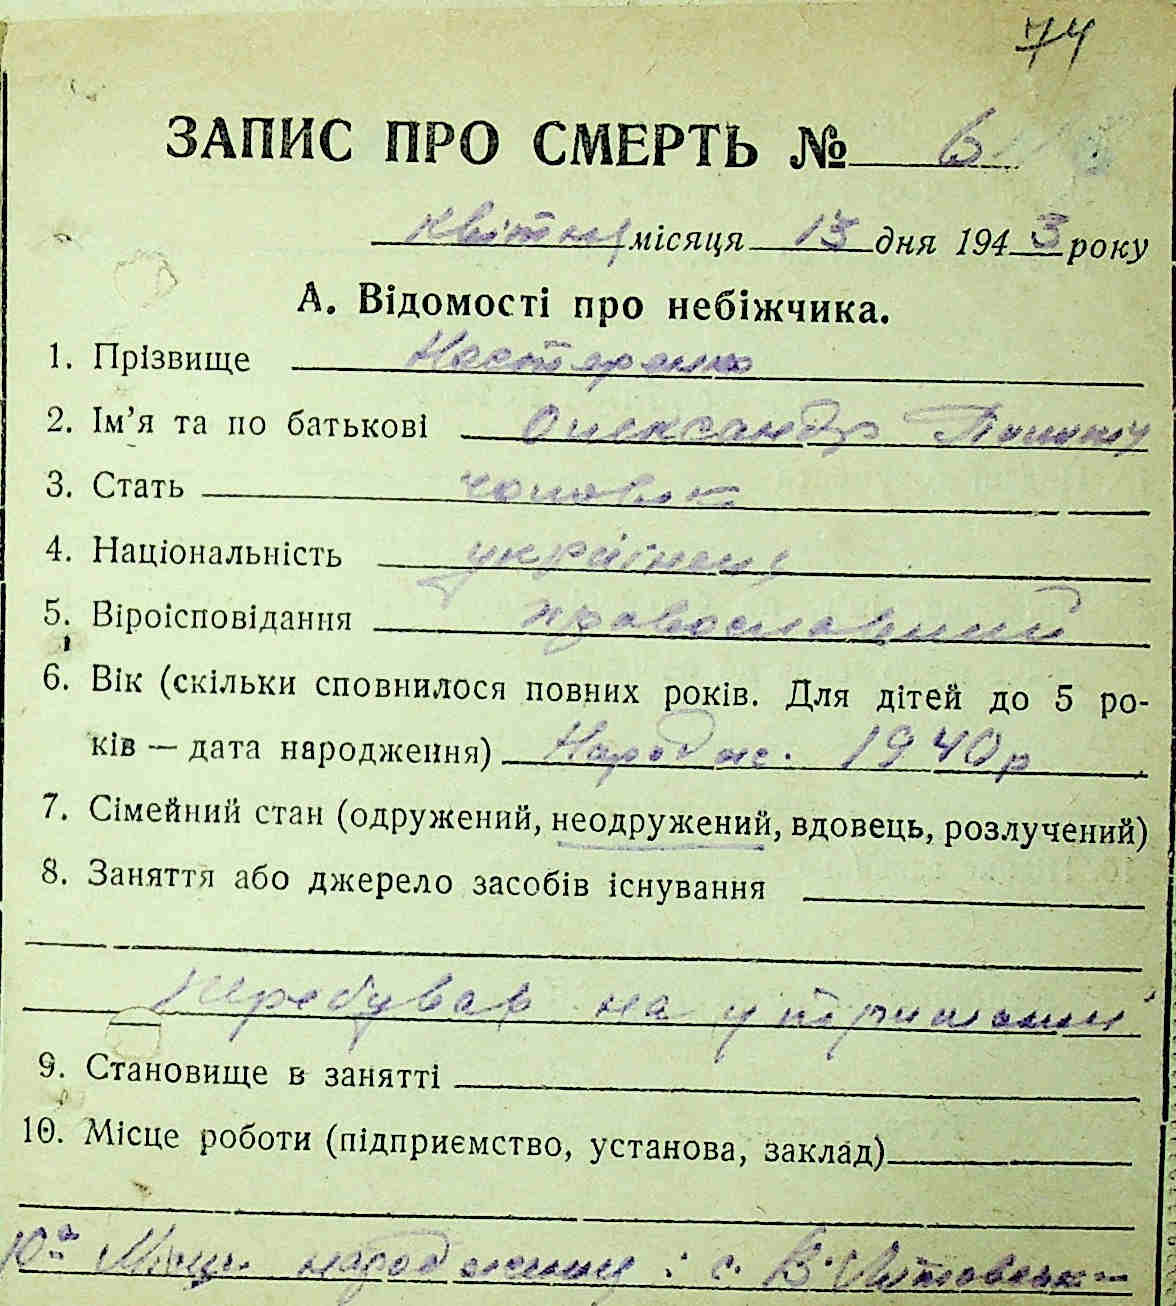 74
ЗАПИС ПРО СМЕРТЬ № 6
квітня місяця 13 дня 1943 року
А. Відомості про небіжчика.
1. Прізвище Нестеренко
2. Ім’я та по батькові Олександр
3. Стать чоловік
4. Національність українець
5. Віроісповідання православний
6. Вік (скільки сповнилося повних років. Для дітей до 5 ро-
ків — дата народження) Народж. 1940 р
7. Сімейний стан (одружений, неодружений, вдовець, розлучений)
8. Заняття або джерело засобів існування
перебував на утриманні
9. Становище в занятті
10. Місце роботи (підприємство, установа, заклад)
10а Місце народження: с. В.